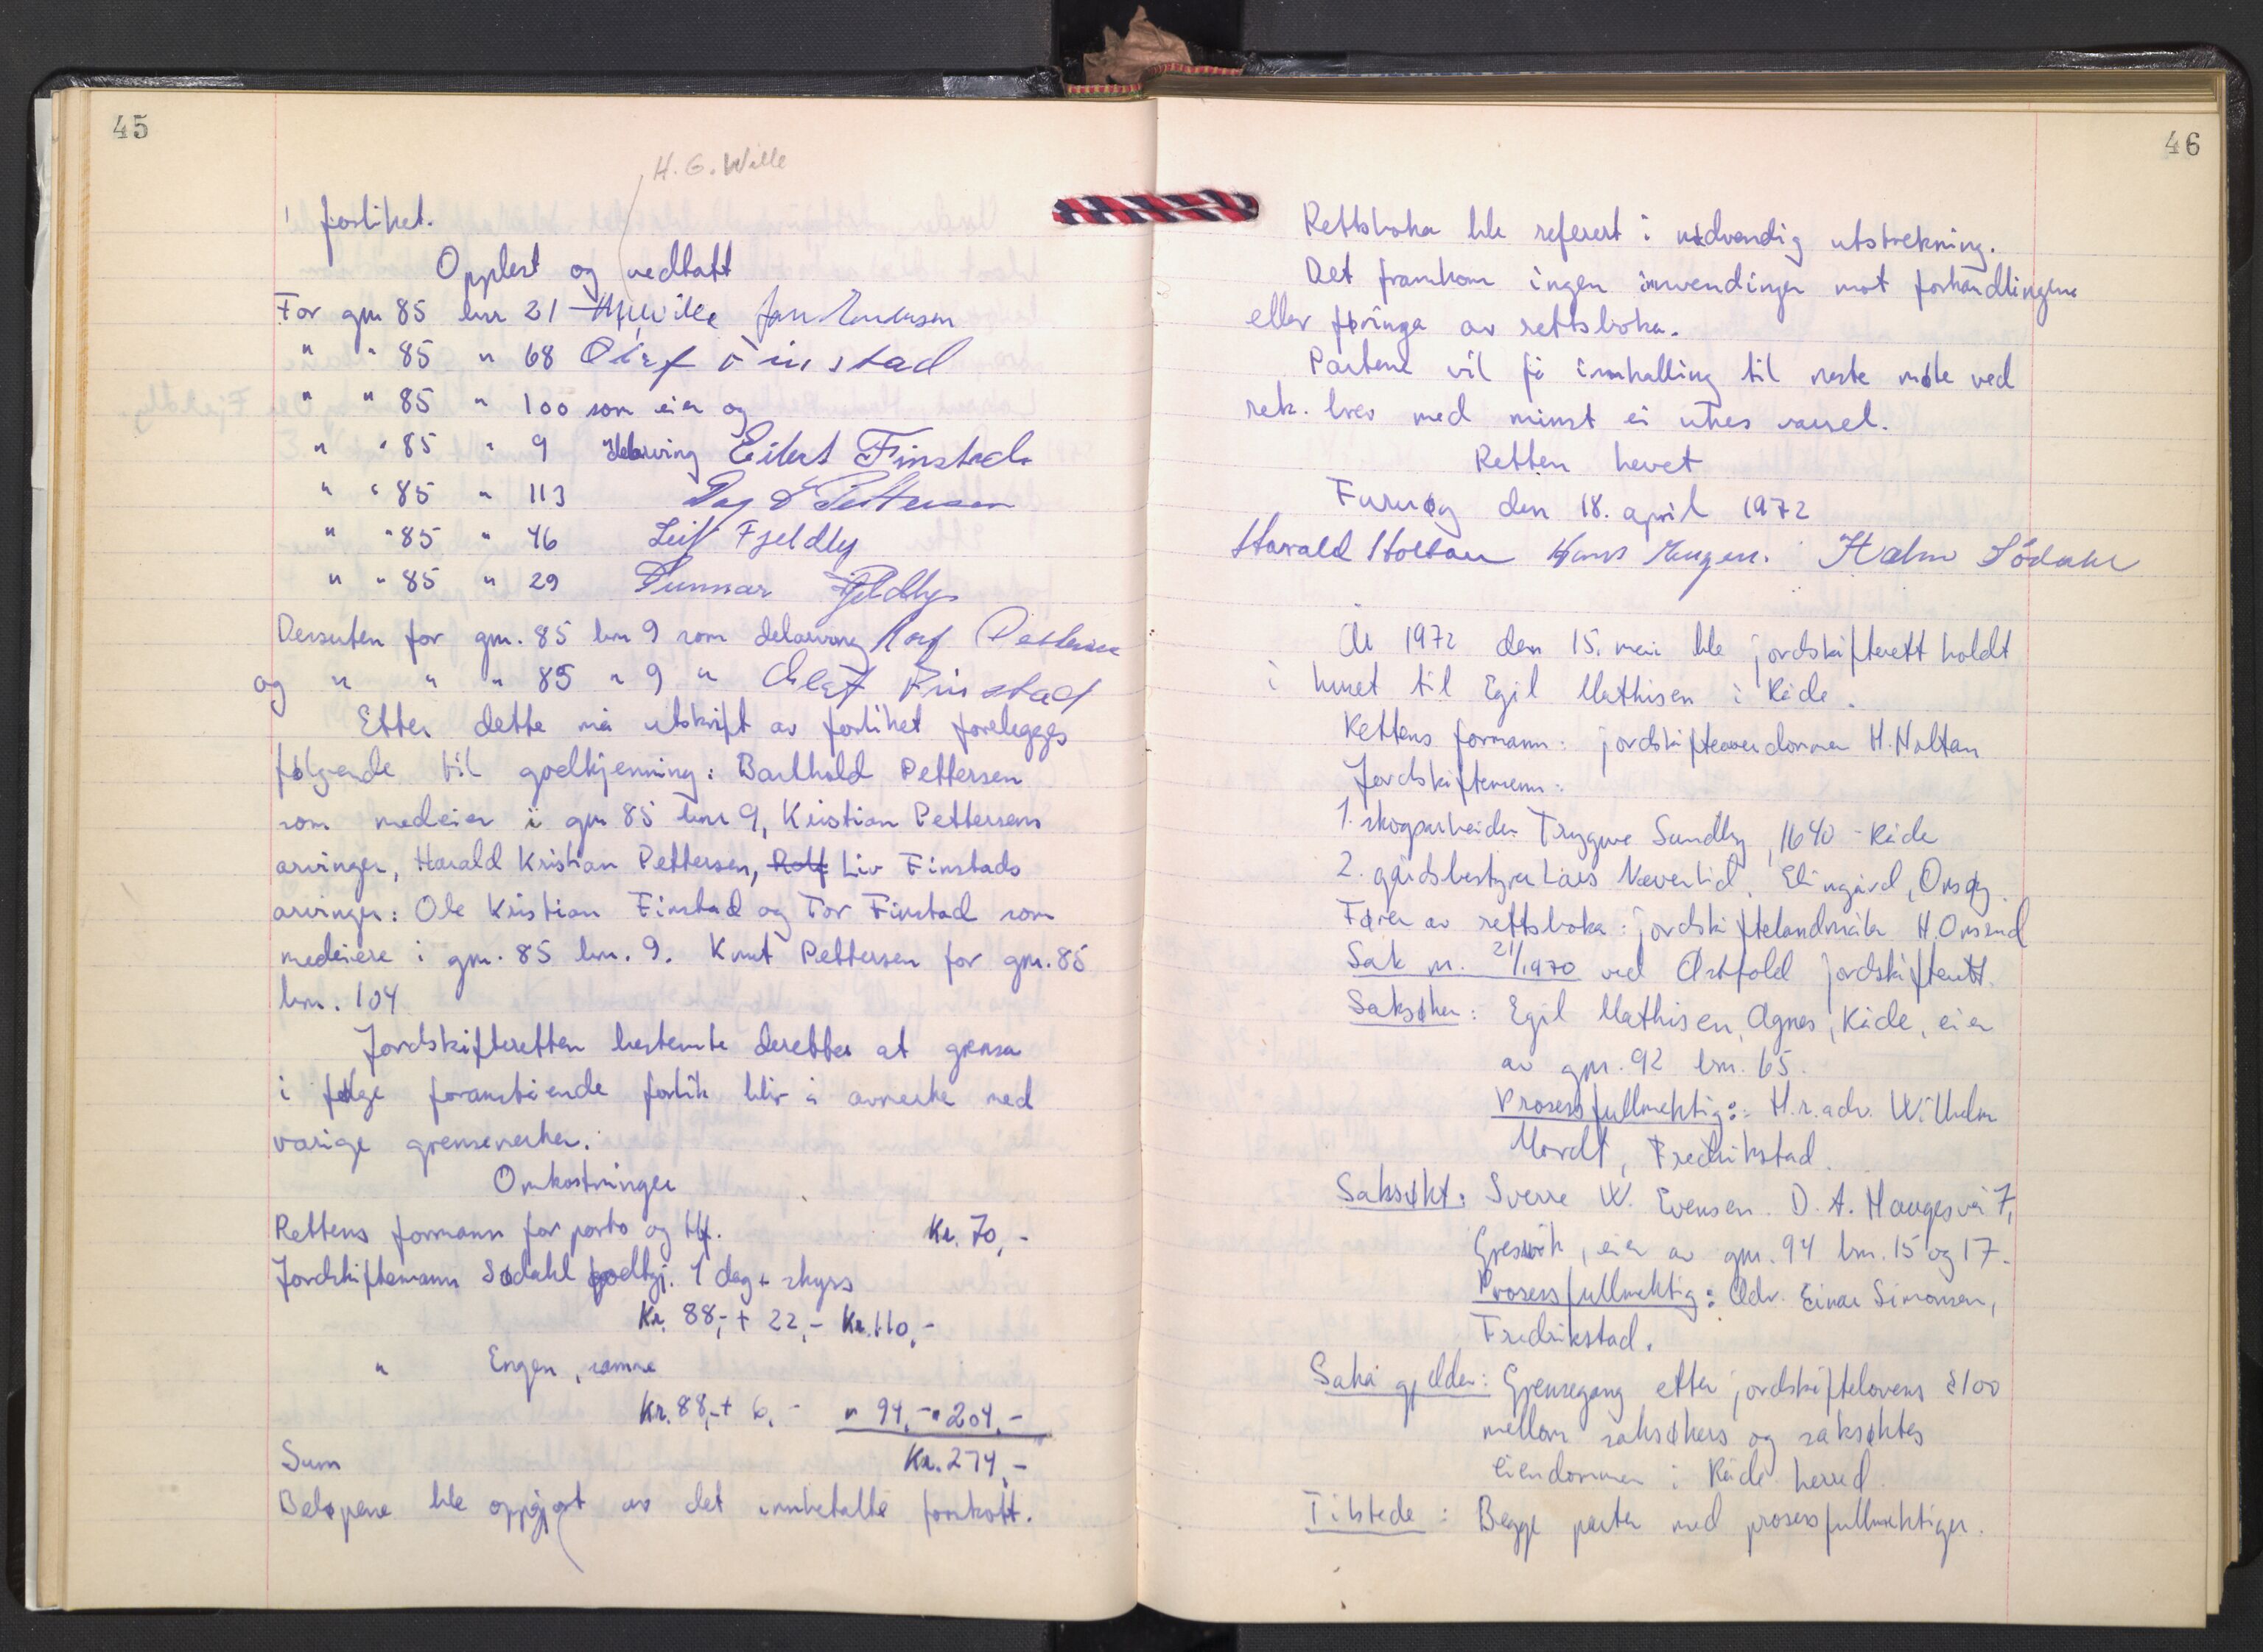 45
H. G. Wille
i forliket.
Opplest og vedtatt
For gnr 85 bnr 21 HGWille Jan
" " 85 " 68 Olaf Finstad
" " 85 " 100 som eier og
" " 85 " 9 delarving Eilert Finstad
" " 85 " 113 Dag Pettersen
" " 85 " 46 Leif Fjeldly
" " 85 " 29 Gunnar Fjeldly
Dessuten for gnr. 85 bnr 9 som delarving Rolf Pettersen
og " " " 85 " 9 " Olaf Finstad
Etter dette må utskrift av forliket forelegges
følgende til godkjenning: Barthold Pettersen
som medeier i gnr 85 bnr 9, Kristian Pettersens
arvinger, Harald Kristian Pettersen, Rolf Liv Finstads
arvinger: Ole Kristian Finstad og Tor Finstad som
medeiere i gnr. 85 bnr. 9. Knut Pettersen for gnr. 85
bnr. 104
Jordskifteretten bestemte deretter at grensa
i følge foranstående forlik blir å avmerke med
varige grensemerker.
Omkostninger
Rettens formann for porto og tlf. Kr. 70,-
Jordskiftemann Sødahl godtgj. 1 dag + skyss
Kr. 88,- + 22,- Kr. 110,-
" Engen, samme
Kr. 88,- + 6,- " 94,- " 204,-
Sum Kr. 274,-
Beløpene ble oppgjort av det innbetalte forskott.
46
Rettsboka ble referert i nødvendig utstrekning.
Det framkom ingen innvendinger mot forhandlingene
eller føringa av rettsboka.
Partene vil få innkalling til neste møte ved
rek. brev med minst ei ukes varsel.
Retten hevet
Furuøy den 18. april 1972
Harald Holtan Hans Engen. Halm Södahl
År 1972 den 15. mai ble jordskifterett holdt
i huset til Egil Mathisen i Råde.
Rettens formann: jordskiftedommer H. Holtan
Jordskiftemenn:
1. skogsarbeider Trygve Sundby, 1640 - Råde
2. gårdsbestyrer Lars Neverlid, Elingård, Onsøy.
Fører av rettsboka: jordskiftelandmåler H. Onsrud
Sak nr. 21/1970 ved Østfold jordskifterett.
Saksøker: Egil Mathisen, Agnes, Råde, eier
av gnr. 92 bnr. 65.
Prosessfullmektig: H.r.adv. Wilhelm
Mordt, Fredrikstad.
Saksøkt: Sverre W. Evensen. D. A. Haugesvei 7,
Gressvik, eier av gnr. 94 bnr. 15 og 17.
Prosessfullmektig: Adv. Einar Simonsen,
Fredrikstad.
Saka gjelder: Grensegang etter jordskiftelovens §100
mellom saksøkers og saksøktes
eiendommer i Råde herred.
Tilstede: Begge parter med prosessfullmektiger.